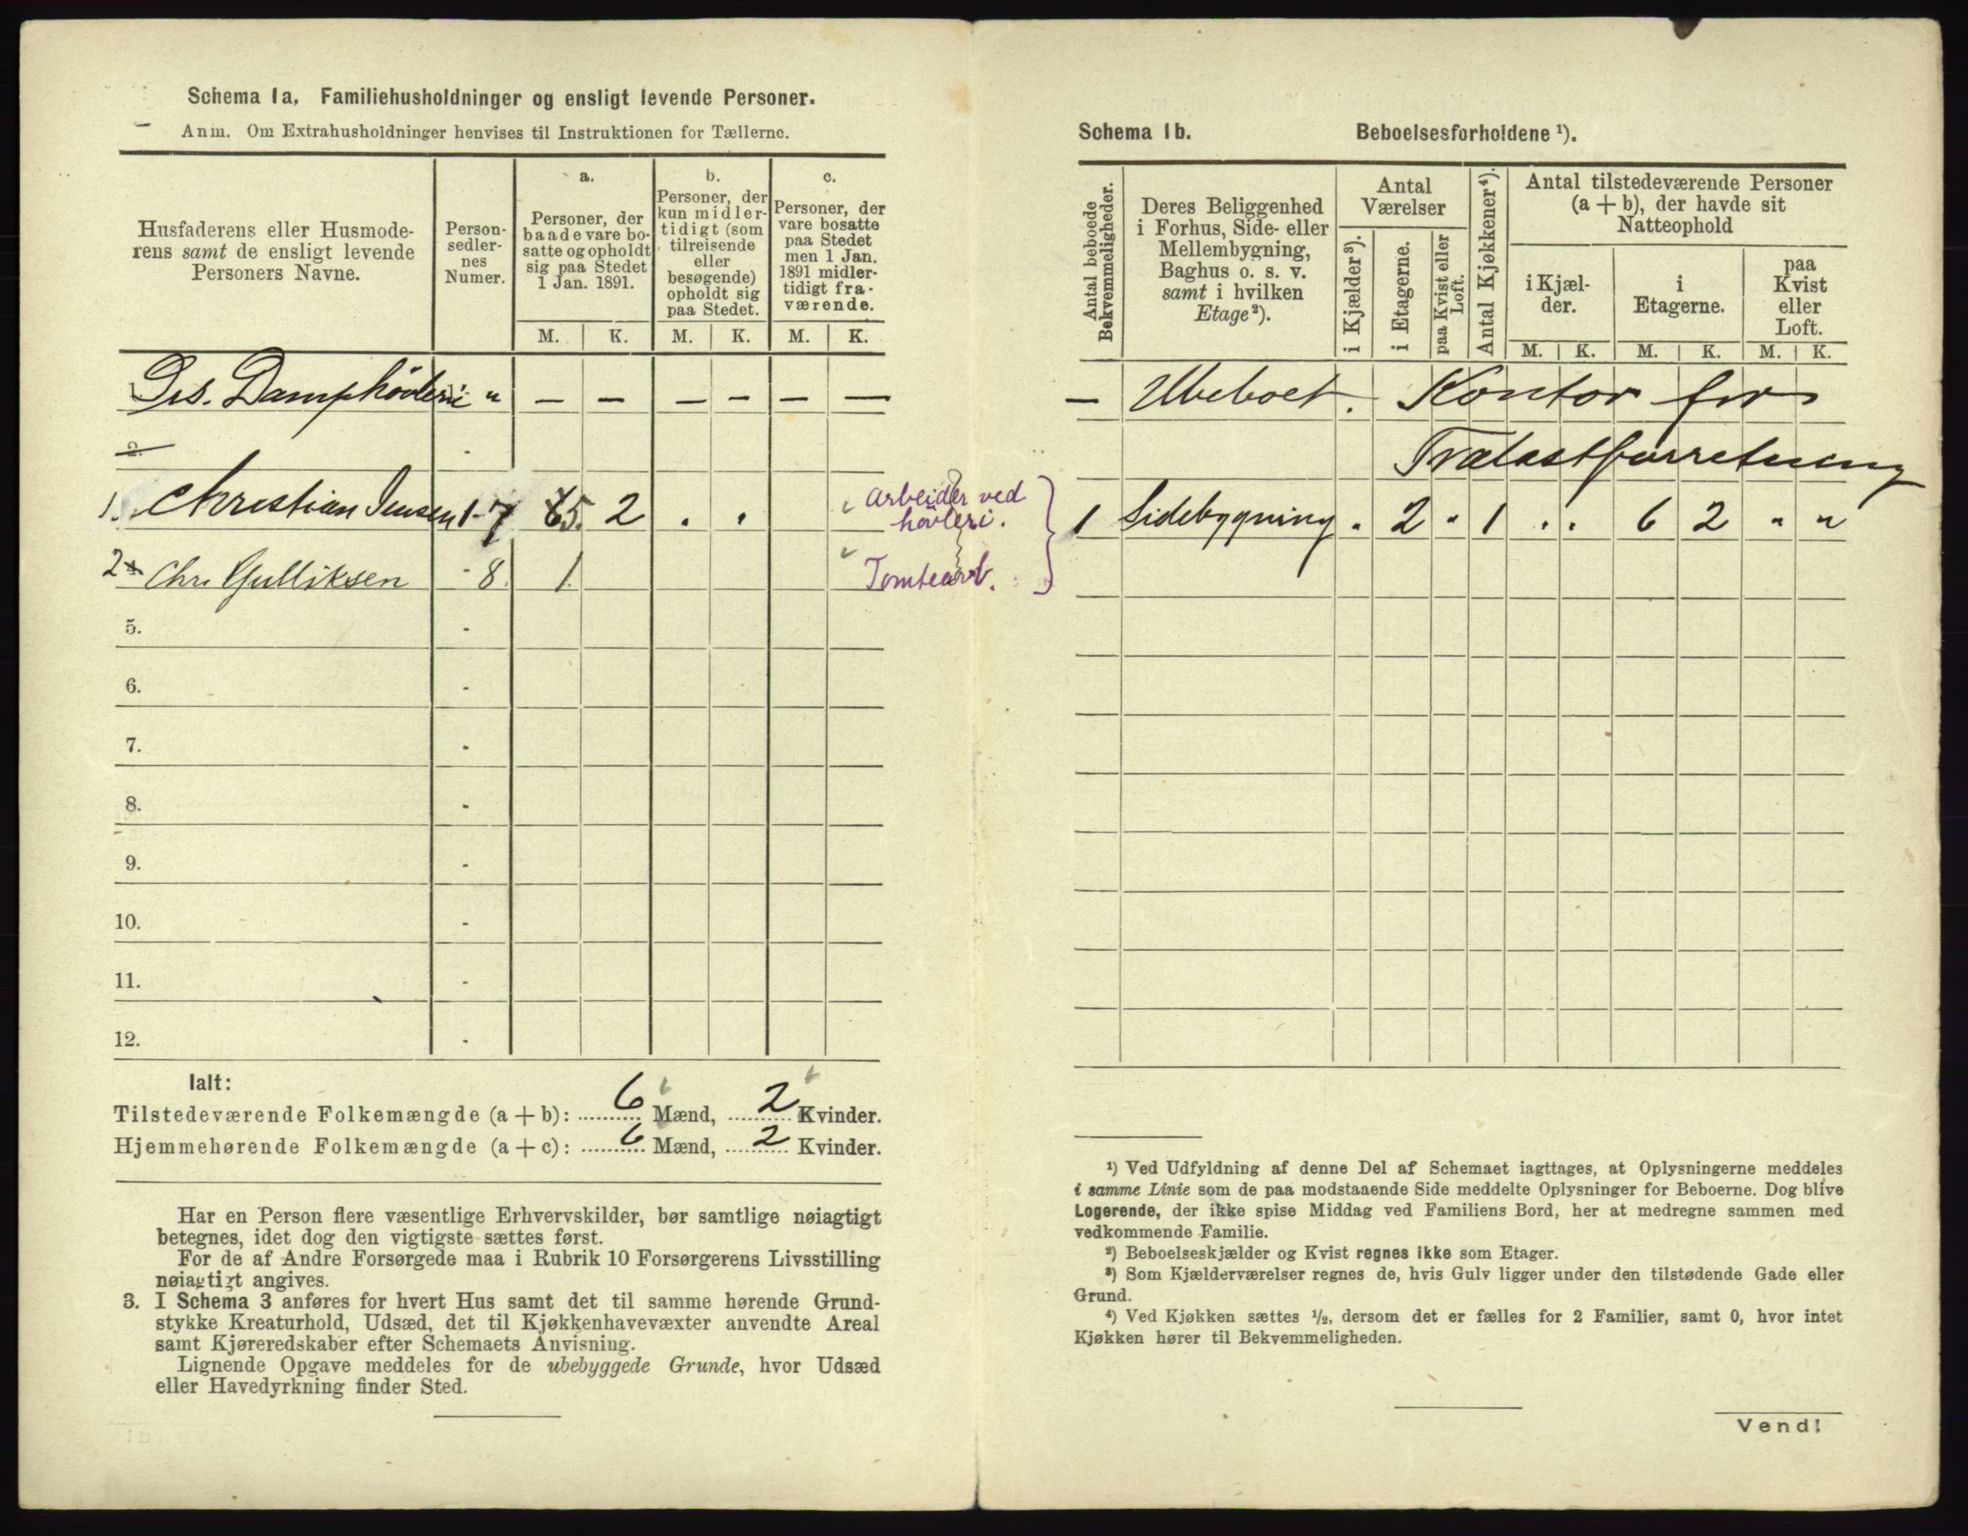 Schema 1a. Familiehusholdninger og ensligt levende Personer.
Anm. Om Extrahusholdninger henvises til Instruktionen for Tællerne.
Husfaderens eller Husmode-
rens samt de ensligt levende
Personers Navne.
Person-
sedler-
nes
Numer.
a.
Personer, der
baade vare bo-
satte og opholdt
sig paa Stedet
1 Jan. 1891.
b.
Personer, der
kun midler-
tidigt (som
tilreisende
eller
besøgende)
opholdt sig
paa Stedet.
c.
Personer, der
vare bosatte
paa Stedet
men 1 Jan.
1891 midler-
tidigt fra-
værende.
M. K. M. K. M. K.
Damphövleri " — — — — — —
2. -
1. Christian Jensen 1-7 65. 2 . . Arbeider ved
hövleri.
2 Chr. Gulliksen - 8. 1. Tomtearb.
5. -
6. -
7. -
8. -
9. -
10. -
11. -
12. -
Ialt:
Tilstedeværende Folkemængde (a + b): 6 Mænd, 2 Kvinder.
Hjemmehørende Folkemængde (a + c): 6 Mænd, 2 Kvinder.
Har en Person flere væsentlige Erhvervskilder, bør samtlige nøiagtigt
betegnes, idet dog den vigtigste sættes først.
For de af Andre Forsørgede maa i Rubrik 10 Forsørgerens Livsstilling
nøiagtigt angives.
3. I Schema 3 anføres for hvert Hus samt det til samme hørende Grund-
stykke Kreaturhold, Udsæd, det til Kjøkkenhavevæxter anvendte Areal
samt Kjøreredskaber efter Schemaets Anvisning.
Lignende Opgave meddeles for de ubebyggede Grunde, hvor Udsæd
eller Havedyrkning finder Sted.
Schema 1b. Beboelsesforholdene ¹).
Antal beboede
Bekvemmeligheder.
Deres Beliggenhed
i Forhus, Side- eller
Mellembygning,
Baghus o. s. v.
samt i hvilken
Etage²).
Antal
Værelser
i Kjælder³).
i Etagerne.
paa Kvist eller
Loft.
Antal Kjøkkener⁴).
Antal tilstedeværende Personer
(a + b), der havde sit
Natteophold
i Kjæl-
der.
i
Etagerne.
paa
Kvist
eller
Loft.
M. K. M. K. M. K.
— Ubeboet. Kontor for
Trælastforretning
1 Sidebygning " 2 " 1 . . 6 2 " "
¹) Ved Udfyldning af denne Del af Schemaet iagttages, at Oplysningerne meddeles
i samme Linie som de paa modstaaende Side meddelte Oplysninger for Beboerne. Dog blive
Logerende, der ikke spise Middag ved Familiens Bord, her at medregne sammen med
vedkommende Familie.
²) Beboelseskjælder og Kvist regnes ikke som Etager.
³) Som Kjælderværelser regnes de, hvis Gulv ligger under den tilstødende Gade eller
Grund.
⁴) Ved Kjøkken sættes ½, dersom det er fælles for 2 Familier, samt 0, hvor intet
Kjøkken hører til Bekvemmeligheden.
Vend!